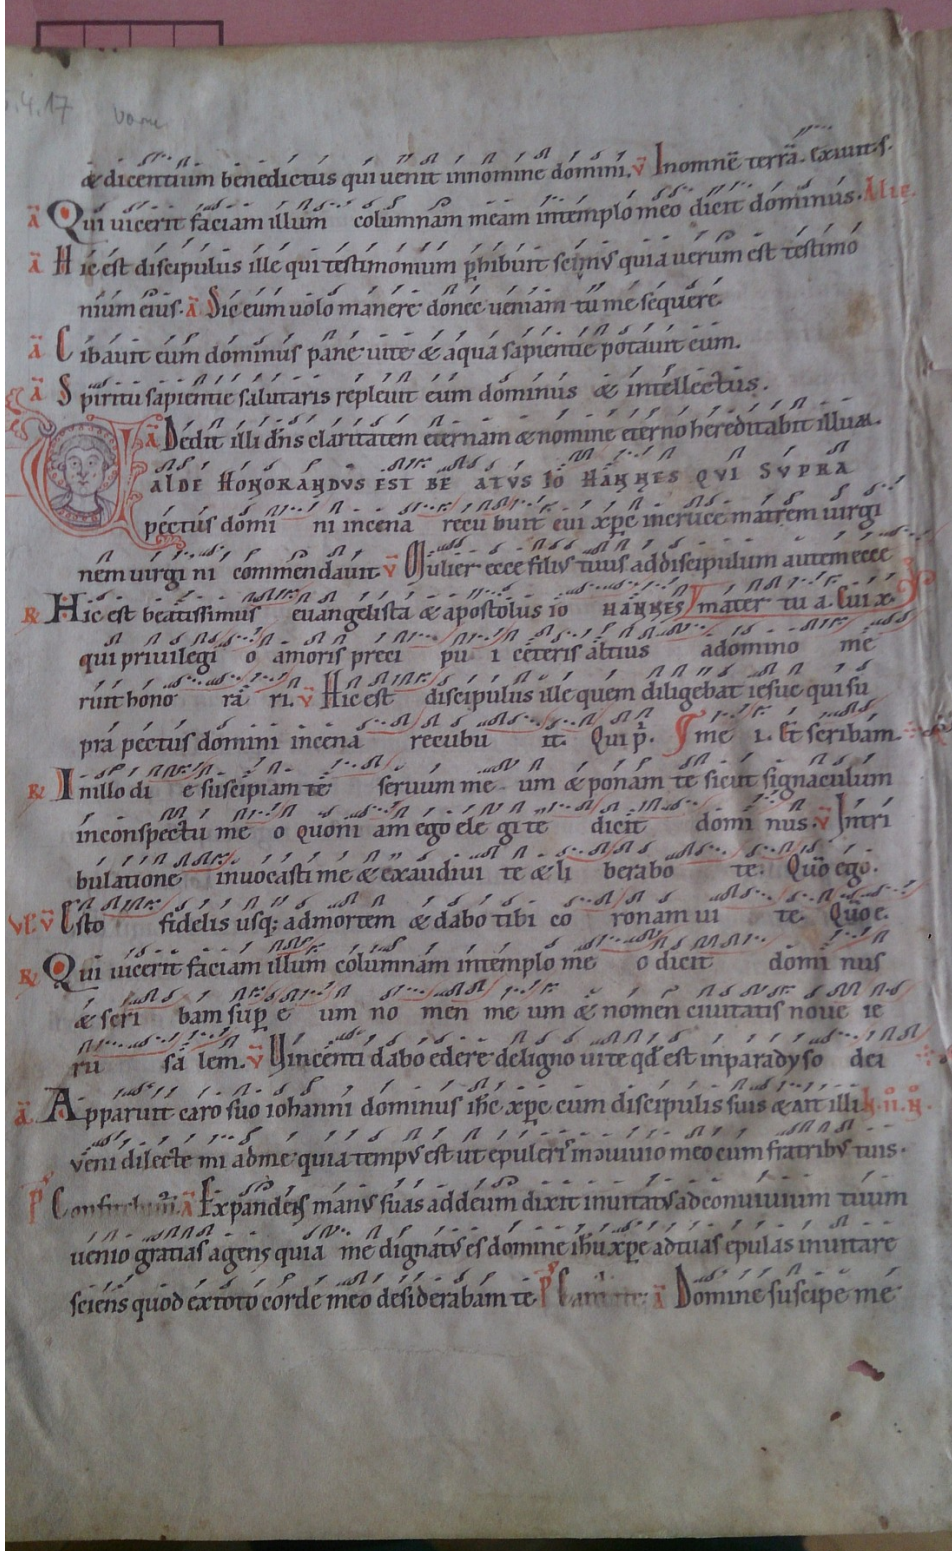 & dicentium benedictus qui uenit innomine domini. v̄ Inomnē terrā. exiuit s.
ā Qui uicerit faciam illum columnam meam intemplo meo dicit dominus. Alie.
ā Hic est discipulus ille qui testimonium phibuit scim' quia uerum est testimo
nium eius. ā Sic eum uolo manere donec ueniam tu me sequere
ā Cibauit eum dominus pane uite & aqua sapientie potauit eum.
ā Spiritu sapientie salutaris repleuit eum dominus & intellectus.
ā Dedit illi dn̄s claritatem eternam & nomine eterno hereditabit illum.
VALDE HONORANDVS EST BEATVS IOHANNES QVI SVPRA
pectus domini incena recubuit cui xp̄c incruce matrem uirgi
nem uirgini commendauit v̄ Mulier ecce filius tuus addiscipulum autem ecce
R Hic est beatissimus euangelista & apostolus iohannes mater tua. Cui x.
qui priuilegio amoris precipui ceteris altius adomino me
ruit honorari. v̄ Hic est discipulus ille quem diligebat iesus qui su
pra pectus domini incena recubuit. Qui p. me i. Et scribam.
R Inillo die suscipiam te seruum meum & ponam te sicut signaculum
inconspectu meo quoniam ego elegi te dicit dominus. v̄ Intri
bulatione inuocasti me & exaudiui te & liberabo te. Qūo ego.
vl v̄ Esto fidelis usq; admortem & dabo tibi coronam uite. Qūo e.
R Qui uicerit faciam illum columnam intemplo meo dicit dominus
& scribam sup eum nomen meum & nomen ciuitatis noue ie
rusalem. v̄ Uincenti dabo edere deligno uite qd est inparadyso dei
ā. Apparuit caro suo iohanni dominus ih̄c xp̄c cum discipulis suis & ait illi
ueni dilecte mi adme quia temp' est ut epuleris inconuiuio meo cum fratrib' tuis.
p' Confitebim. ā Expandens man' suas addeum dixit inuitat' adconuiuium tuum
uenio gratias agens quia me dignat' es domine ih̄u xp̄e adtuas epulas inuitare
sciens quod extoto corde meo desiderabam te p' ā Domine suscipe me